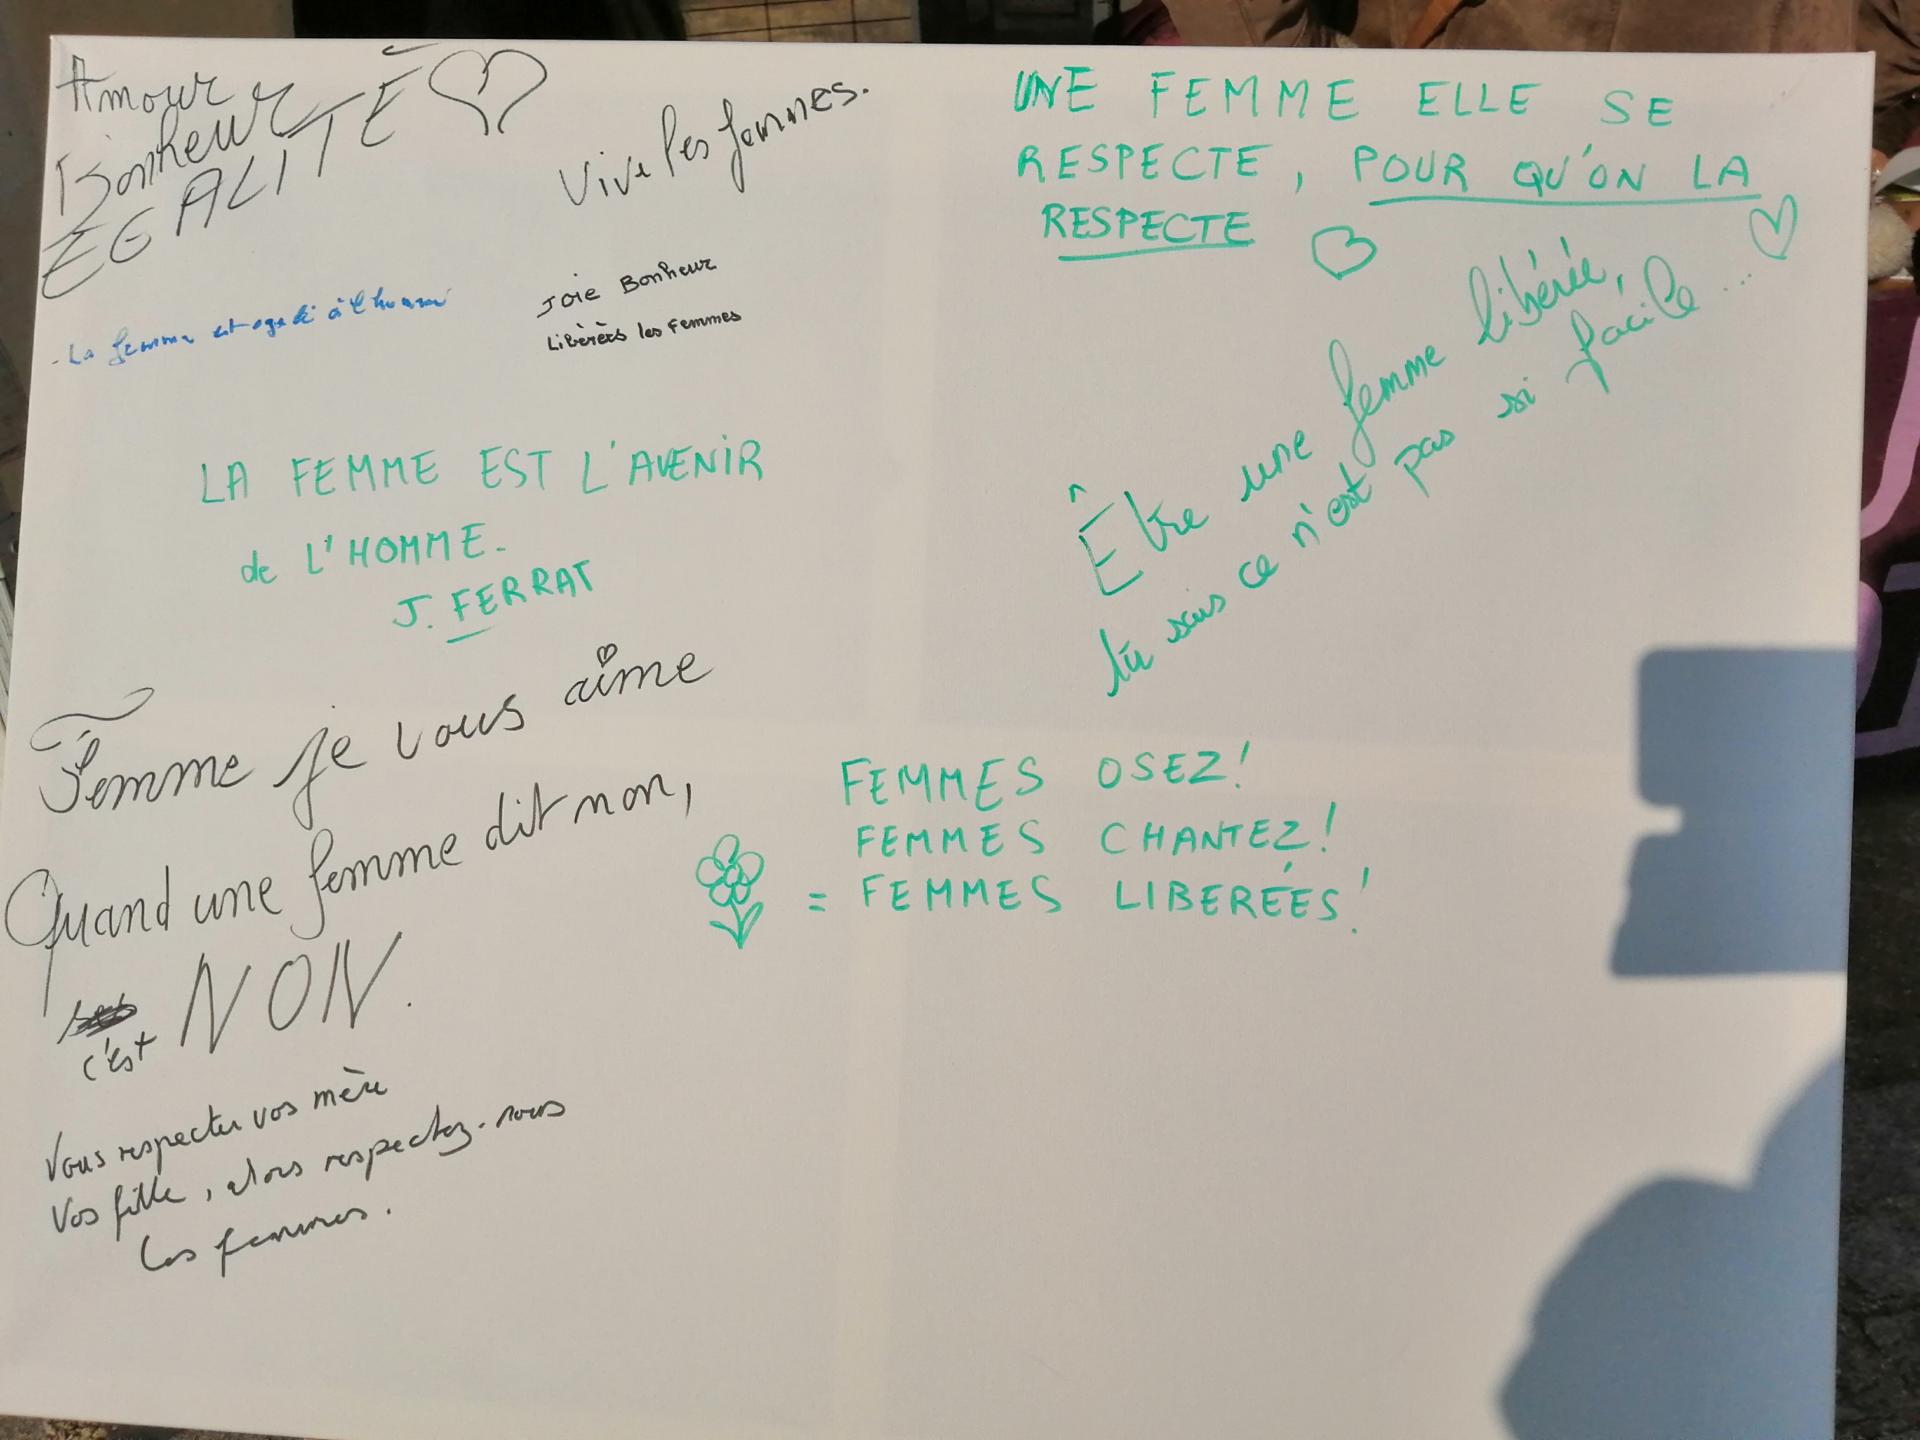 Amour
Bonheur
EGALITÉ
Vive les femmes.
- La femme est egale à l'homme
Joie Bonheur
Libèrès les femmes
LA FEMME EST L'AVENIR
de L'HOMME.
J. FERRAT
Femme je vous aime
Quand une femme dit non,
c'est NON.
Vous respecter vos mère
Vos fille, alors respectez-nous
les femmes.
UNE FEMME ELLE SE
RESPECTE, POUR QU'ON LA
RESPECTE
Être une femme libérée,
tu sais ce n'est pas si facile...
FEMMES OSEZ!
FEMMES CHANTEZ!
= FEMMES LIBERÉES!